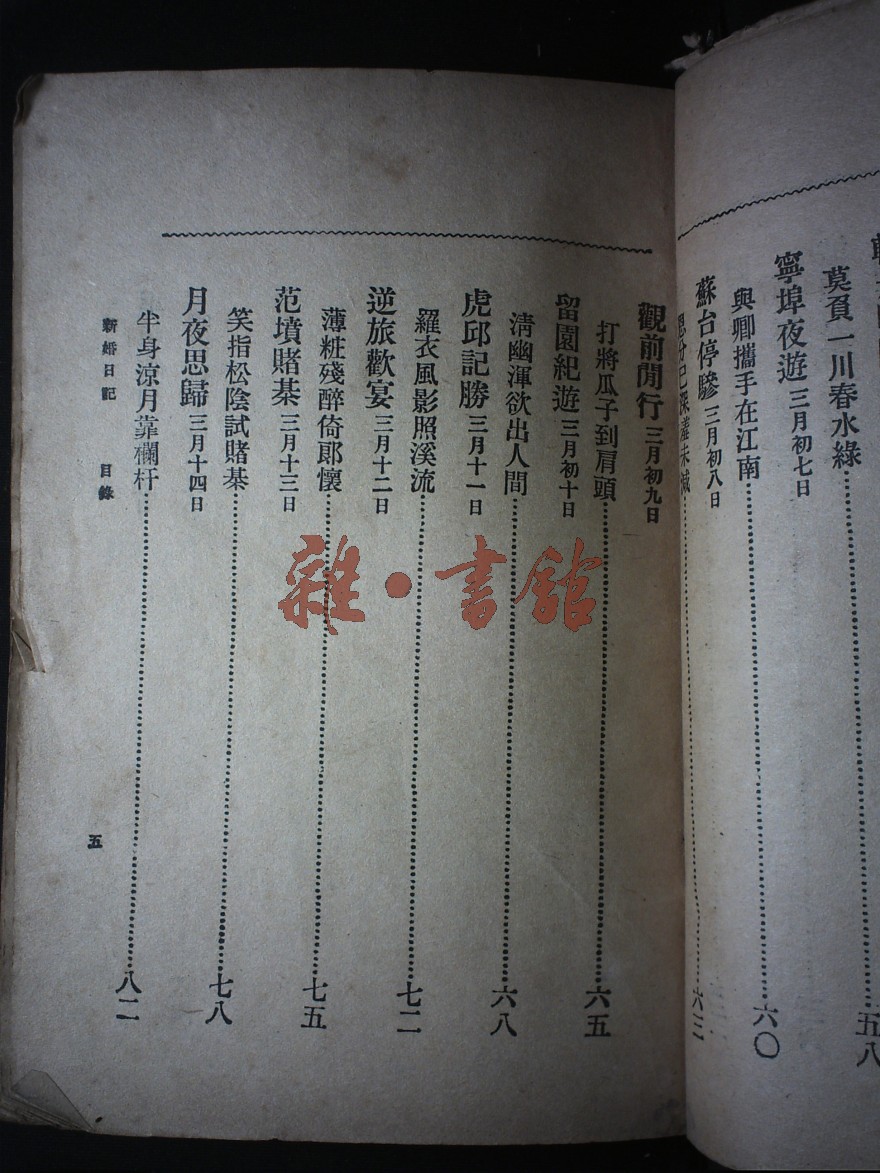 莫負一川春水綠⋯⋯五八
寧埠夜遊 三月初七日
與卿攜手在江南⋯⋯六〇
蘇台停驂 三月初八日
恩分已深羞未減⋯⋯六三
觀前閒行 三月初九日
打將瓜子到肩頭⋯⋯六五
留園紀遊 三月初十日
清幽渾欲出人間⋯⋯六八
虎邱記勝 三月十一日
羅衣風影照溪流⋯⋯七二
逆旅歡宴 三月十二日
薄粧殘醉倚郎懷⋯⋯七五
范墳賭棊 三月十三日
笑指松陰試賭棊⋯⋯七八
月夜思歸 三月十四日
半身涼月靠欄杆⋯⋯八二
新婚日記 目錄 五
雜·書館